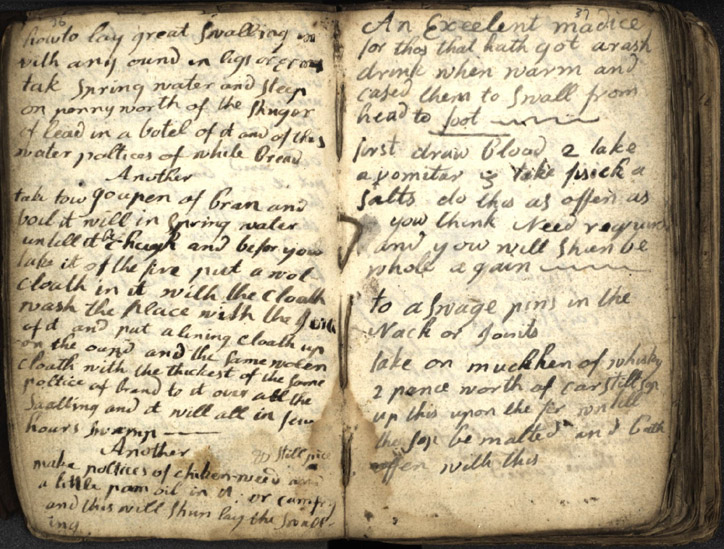 36
how to lay great Swalling in
with any ound in ligs or
tak Spring water and steep
on pennyworth of the Shugor
of Lead in a botel of it and of this
water poltices of while Bread
Another
take tow goupen of bran and
boil it will in Spring water
untill it be though and befor you
take it of the fire put a wol
cloath in it with the cloath
wash the place with the
of it and put a lining cloath up
on the ound and the same water
cloath with the thickest of the same
poltice of brand to it over all the
Swalling and it will all in few
hours Swamp
Another
make poltices of chiken-weed
a little pam oil in it or
and this will Shun lay the Swall-
ing
37
An Excelent madice
for thos that hath got a rash
drink when warm and
cased them to Swall from
head to foot
first draw blood 2 take
a vomiter 3 take pisick a
salts do this as offen as
you think Need
and yow will Shun be
whole again
to aswage pins in the
Nack or Joints
take on muchken of whisky
2 pence worth of carstill sop
up this upon the fer untill
the sop be malted and bath
offen with this